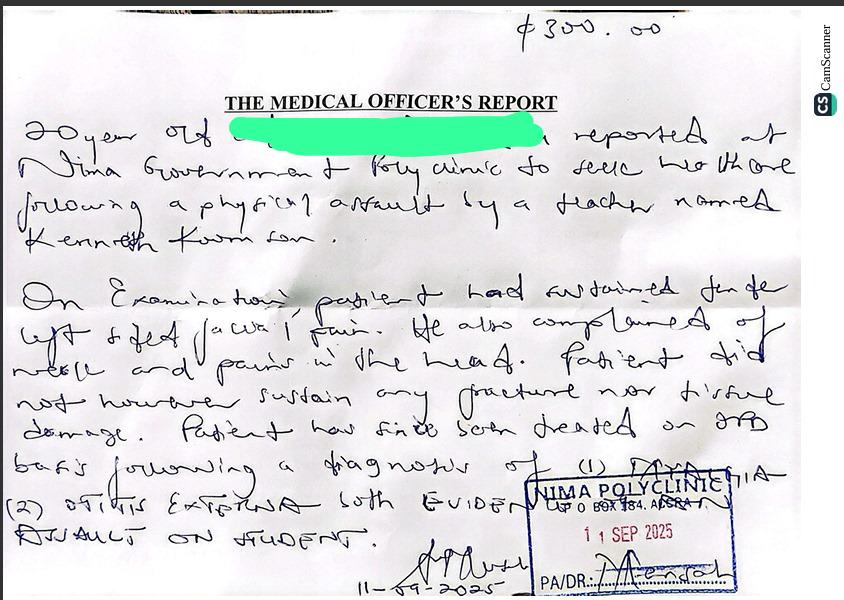 ¢300.00
CS CamScanner
THE MEDICAL OFFICER'S REPORT
20 year old reported at
Nima Government Polyclinic to seek healthcare
following a physical assault by a teacher named
Kenneth
On Examination patient had sustained tender
left sided facial pain. He also complained of
neck and pains in the head. Patient did
not however sustain any fracture nor tissue
damage. Patient has since been treated on OPD
basis following a diagnosis of (1)
(2) OTITIS EXTERNA both EVIDENT
ASSAULT ON STUDENT.
NIMA POLYCLINIC
P O BOX 784, ACCRA
11 SEP 2025
PA/DR.: Mensah
11-09-2025